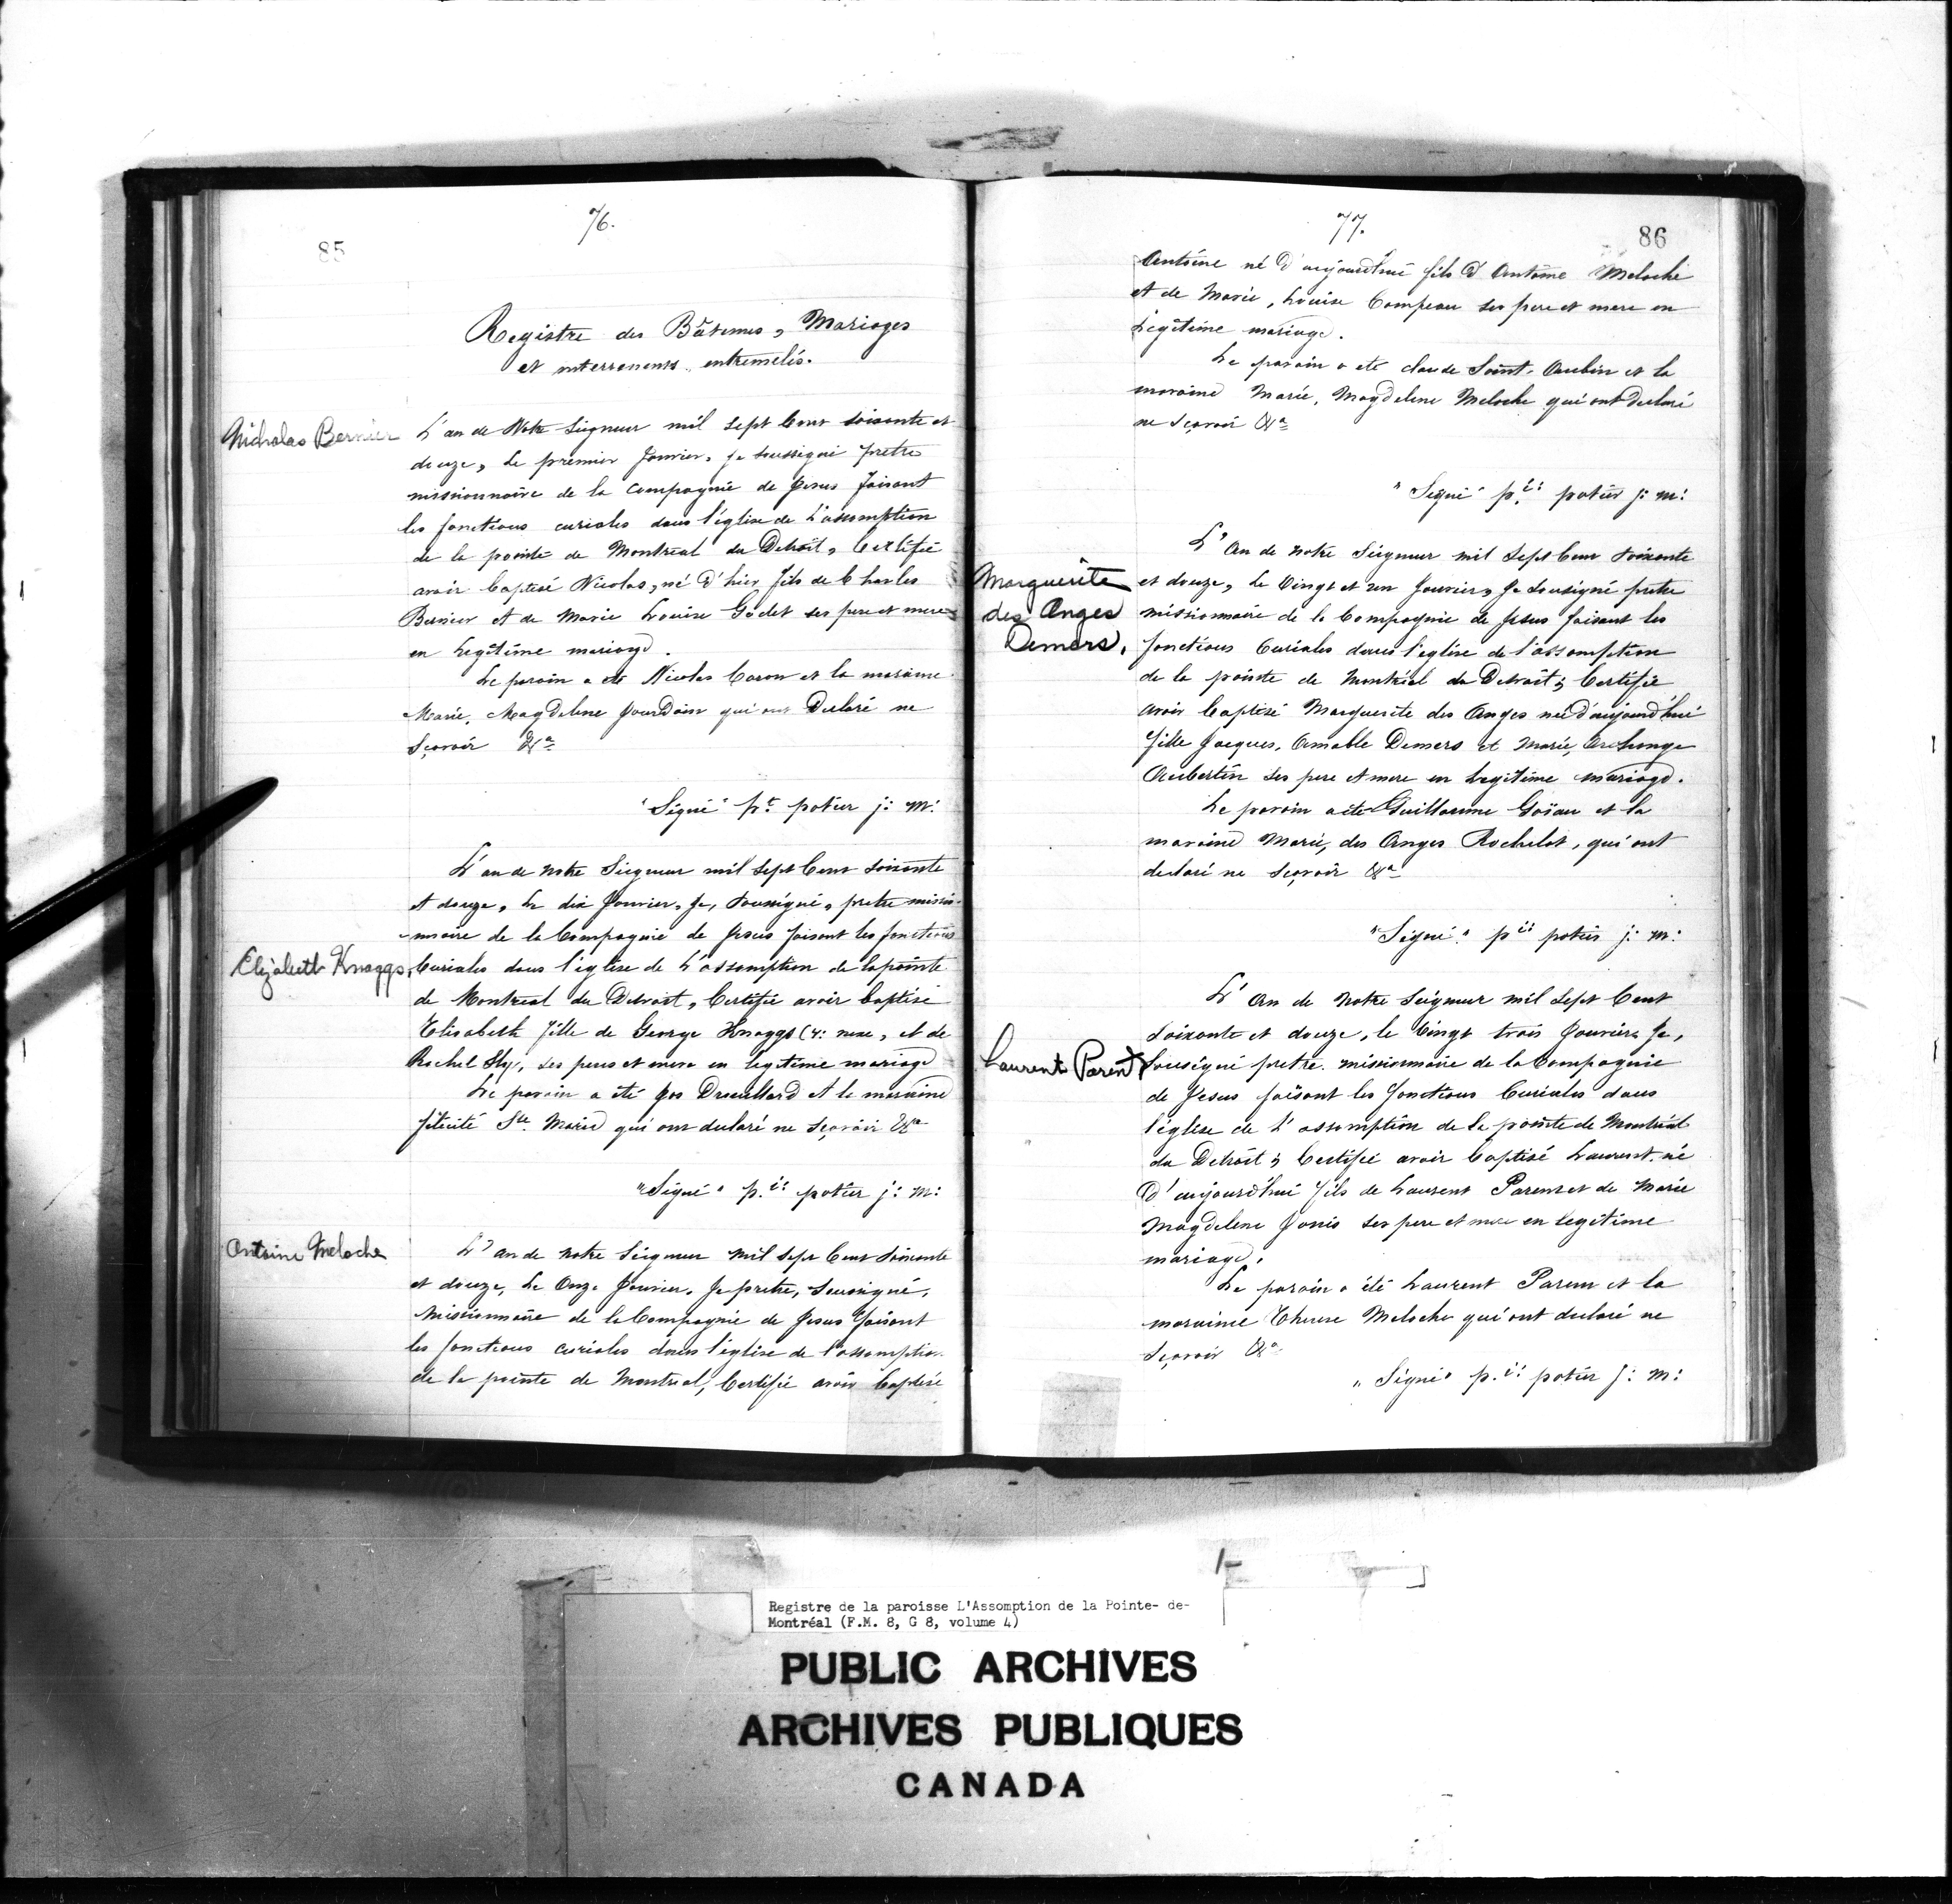 76.
85
Registre des Bâtemes, Mariages
et interrements entremelés.
Nicholas Bernier
L'an de Notre Seigneur mil sept Cent soisante et
douze, Le premier Janvier, je soussigné pretre
missionnaire de la Compagnie de Jesus faisant
les fonctions curiales dans l'église de L'assomption
de la pointe de Montreal du Detroit, Certifie
avoir baptisé Nicolas, né d'hier fils de Charles
Bernier et de Marie Louise Godet ses pere et mere
en Legitime mariage.
Le parain a eté Nicolas Caron et la maraine
Marie, Magdelene Jourdain qui ont Declaré ne
Sçavoir &a
"Signé" pr. potier j: m:
L'an de notre Seigneur mil sept Cent soixante
et douze, Le dix Janvier, Je, soussigné, pretre missio-
-nnaire de la Compagnie de Jesus faisant les fonctions
Elizabeth Knaggs,
Curiales dans l'église de L'assomption de la pointe
de Montreal du Detroit, Certifie avoir baptisé
Elisabeth fille de George Knaggs (4: nexe, et de
Rachel Sly, ses peres et mere en legitime mariage
Le parain a été Jos Drouillard et la maraine
félicité Ste. Marie qui ont declaré ne Sçavoir &a
"Signé" p.re: potier j: m:
Antoine Meloche
L'an de notre Seigneur mil sept Cent soixante
et douze, Le Onze Janvier, Je pretre, soussigné,
Missionnaire de la Compagnie de Jesus faisant
les fonctions curiales dans l'église de l'assomption
de la pointe de Montreal, Certifie avoir baptisé
77.
86
Antoine né d'aujourdhui fils d'Antoine Meloche
et de Marie, Louise Compeau ses pere et mere en
Legitime mariage.
Le parain a eté claude Saint, Aubin et la
maraine Marie, Magdelene Meloche qui ont declaré
ne sçavoir &a
"Signé" p.re: potier j: m:
L'An de notre Seigneur mil sept Cent soixante
Marguerite
des Anges
Demers,
et douze, Le Vingt et un Janvier, Je soussigné pretre
missionnaire de la Compagnie de Jesus faisant les
fonctions Curiales dans l'eglise de l'assomption
de la pointe de Montréal du Detroit; Certifie
avoir baptisé Marguerite des Anges née d'aujourd'hui
fille Jacques, Amable Demers et Marie, Archange
Aubertin ses pere et mere en Legitime mariage.
Le parain a eté Guillaume Goïau et la
maraine Marie, des Anges Rochelot, qui ont
declaré ne sçavoir &a
"Signé" p.re: potier j: m:
L'An de notre Seigneur mil Sept Cent
Soixante et douze, le Vingt trois Janvier Je,
Laurent Parent
soussigné pretre missionnaire de la Compagnie
de Jesus faisant les fonctions Curiales dans
l'église de L'assomption de la pointe de Montréal
du Detroit; Certifie avoir baptisé Laurent, né
d'aujourd'hui fils de Laurent Parent et de Marie
Magdelene Janis ses pere et mere en legitime
mariage.
Le parain a été Laurent Parent et la
maraine Therese Meloche qui ont declaré ne
sçavoir &a
"Signé" p.re: potier j: m:
Registre de la paroisse L'Assomption de la Pointe- de-
Montréal (F.M. 8, G 8, volume 4)
PUBLIC ARCHIVES
ARCHIVES PUBLIQUES
CANADA